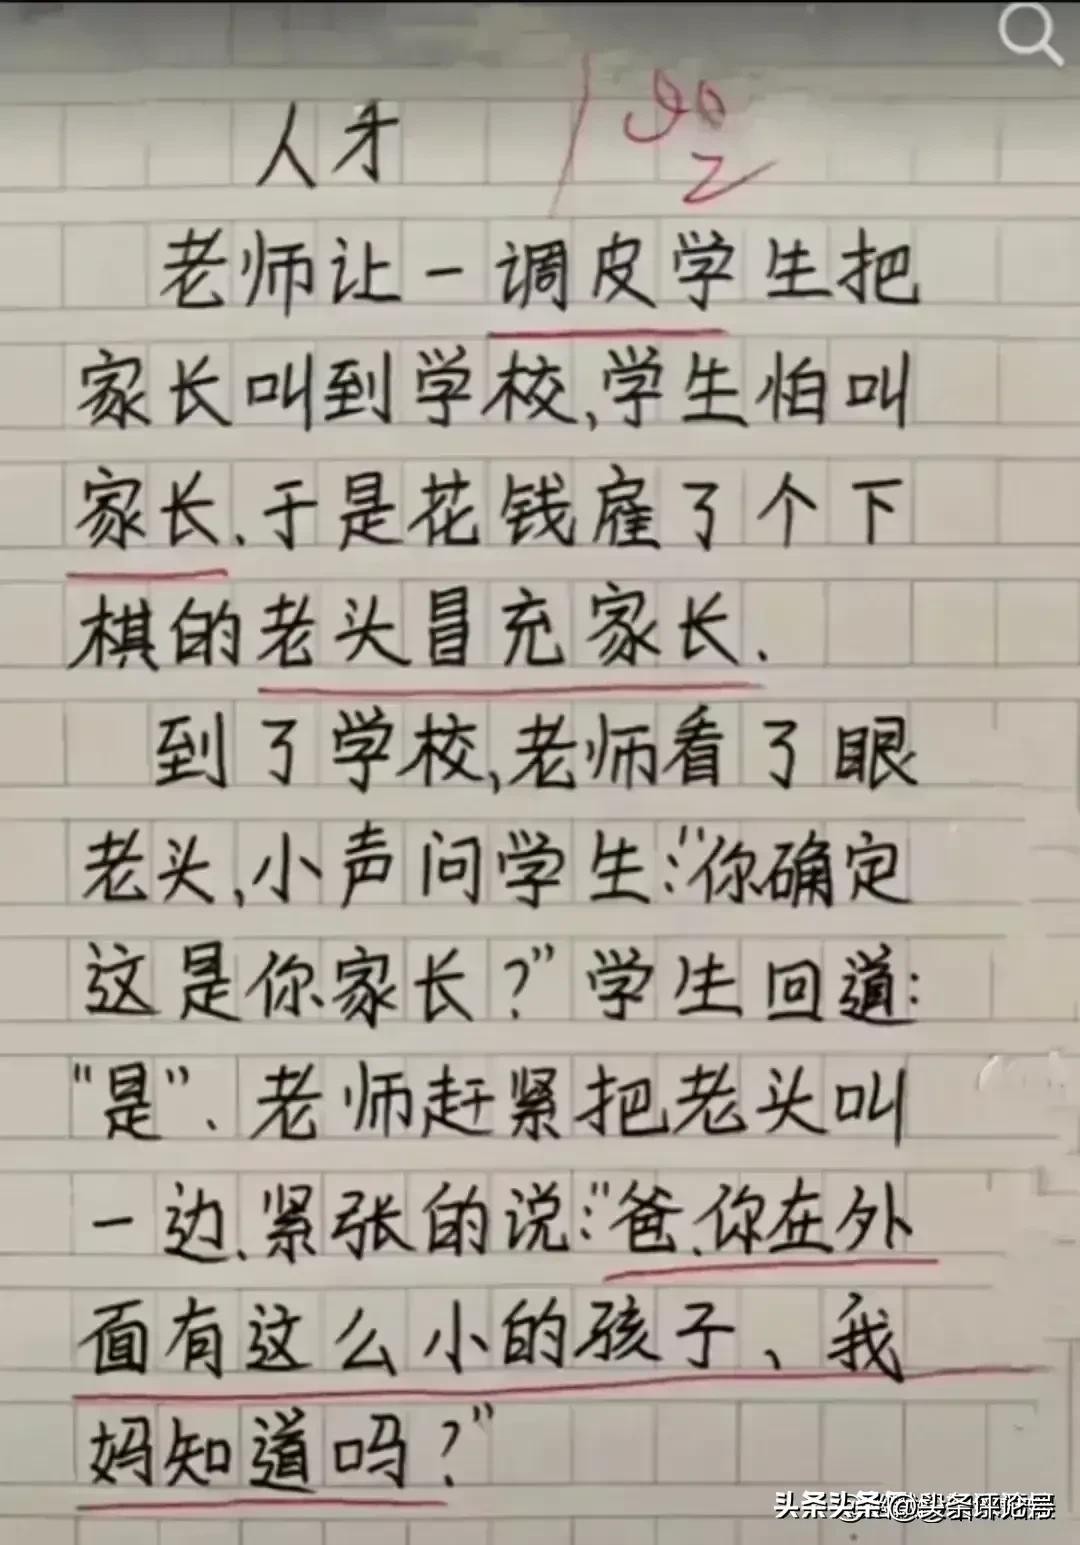 人才
老师让一调皮学生把
家长叫到学校,学生怕叫
家长、于是花钱雇了个下
棋的老头冒充家长.
到了学校,老师看了眼
老头,小声问学生:“你确定
这是你家长?”学生回道:
“是”、老师赶紧把老头叫
一边、紧张的说:“爸、你在外
面有这么小的孩子、我
妈知道吗?”